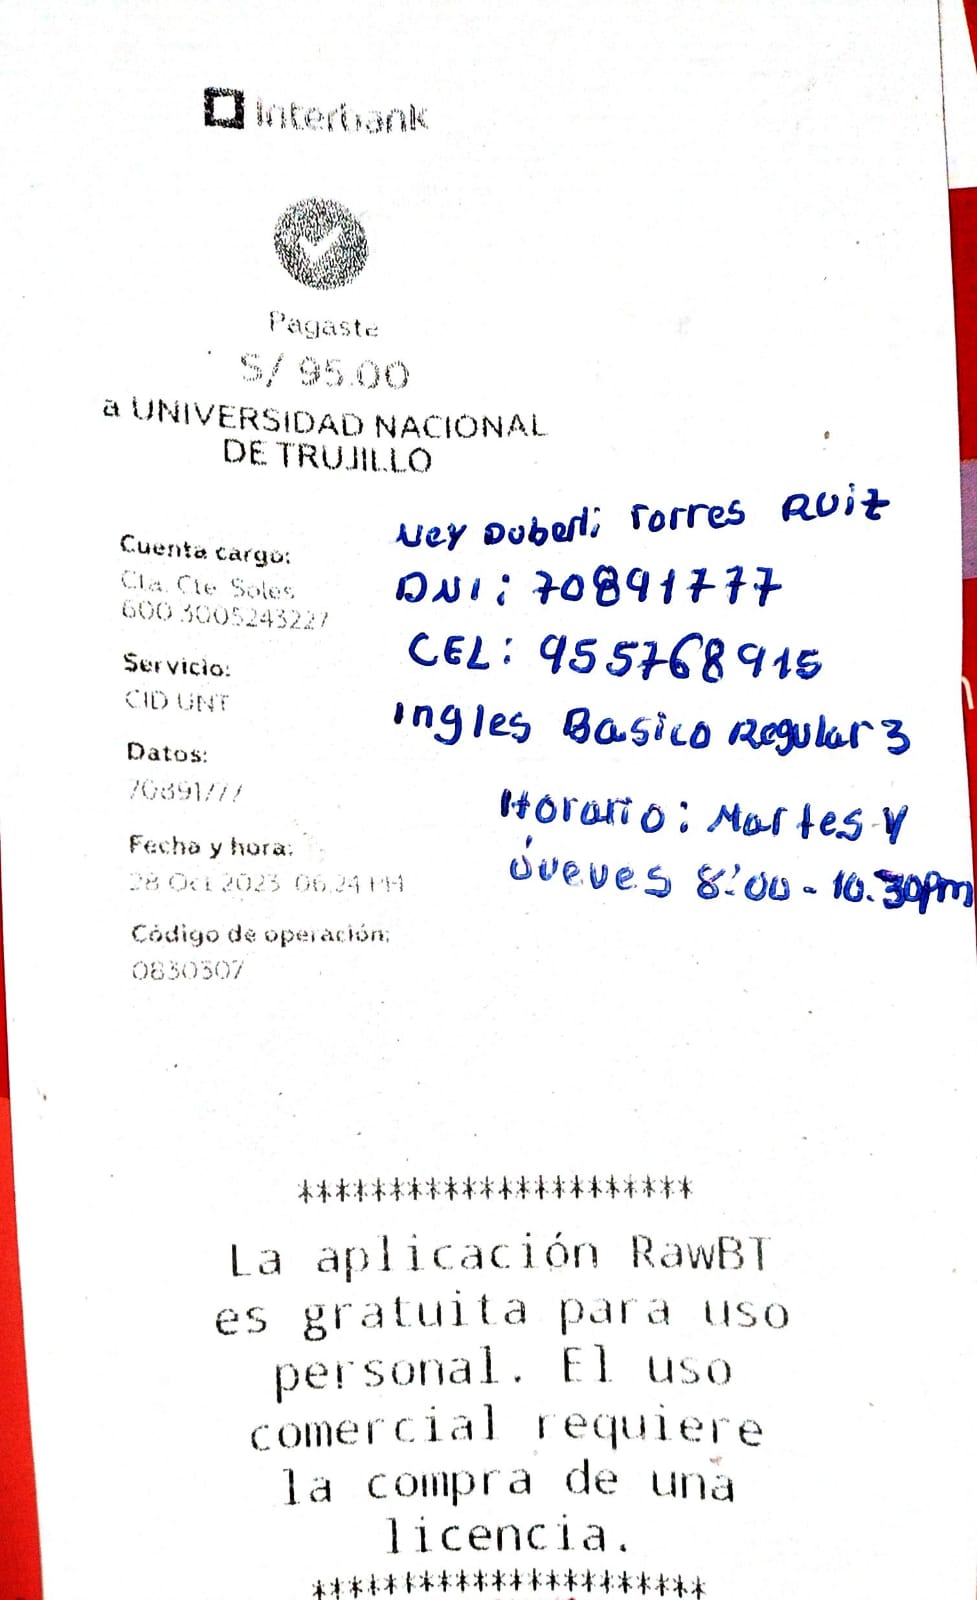 Interbank
Pagaste
S/ 95.00
a UNIVERSIDAD NACIONAL
DE TRUJILLO
Ney Duberli Torres Ruiz
Cuenta cargo:
Cta. Cte Soles
DNI: 70891777
600 3005243227
CEL: 955768915
Servicio:
CID UNT
Ingles Basico Regular 3
Datos:
70891777
Horario: Martes y
Jueves 8:00 - 10.30pm
Fecha y hora:
28 Oct 2023 06:24 PM
Código de operación:
0830307
**********************
La aplicación RawBT
es gratuita para uso
personal. El uso
comercial requiere
la compra de una
licencia.
**********************